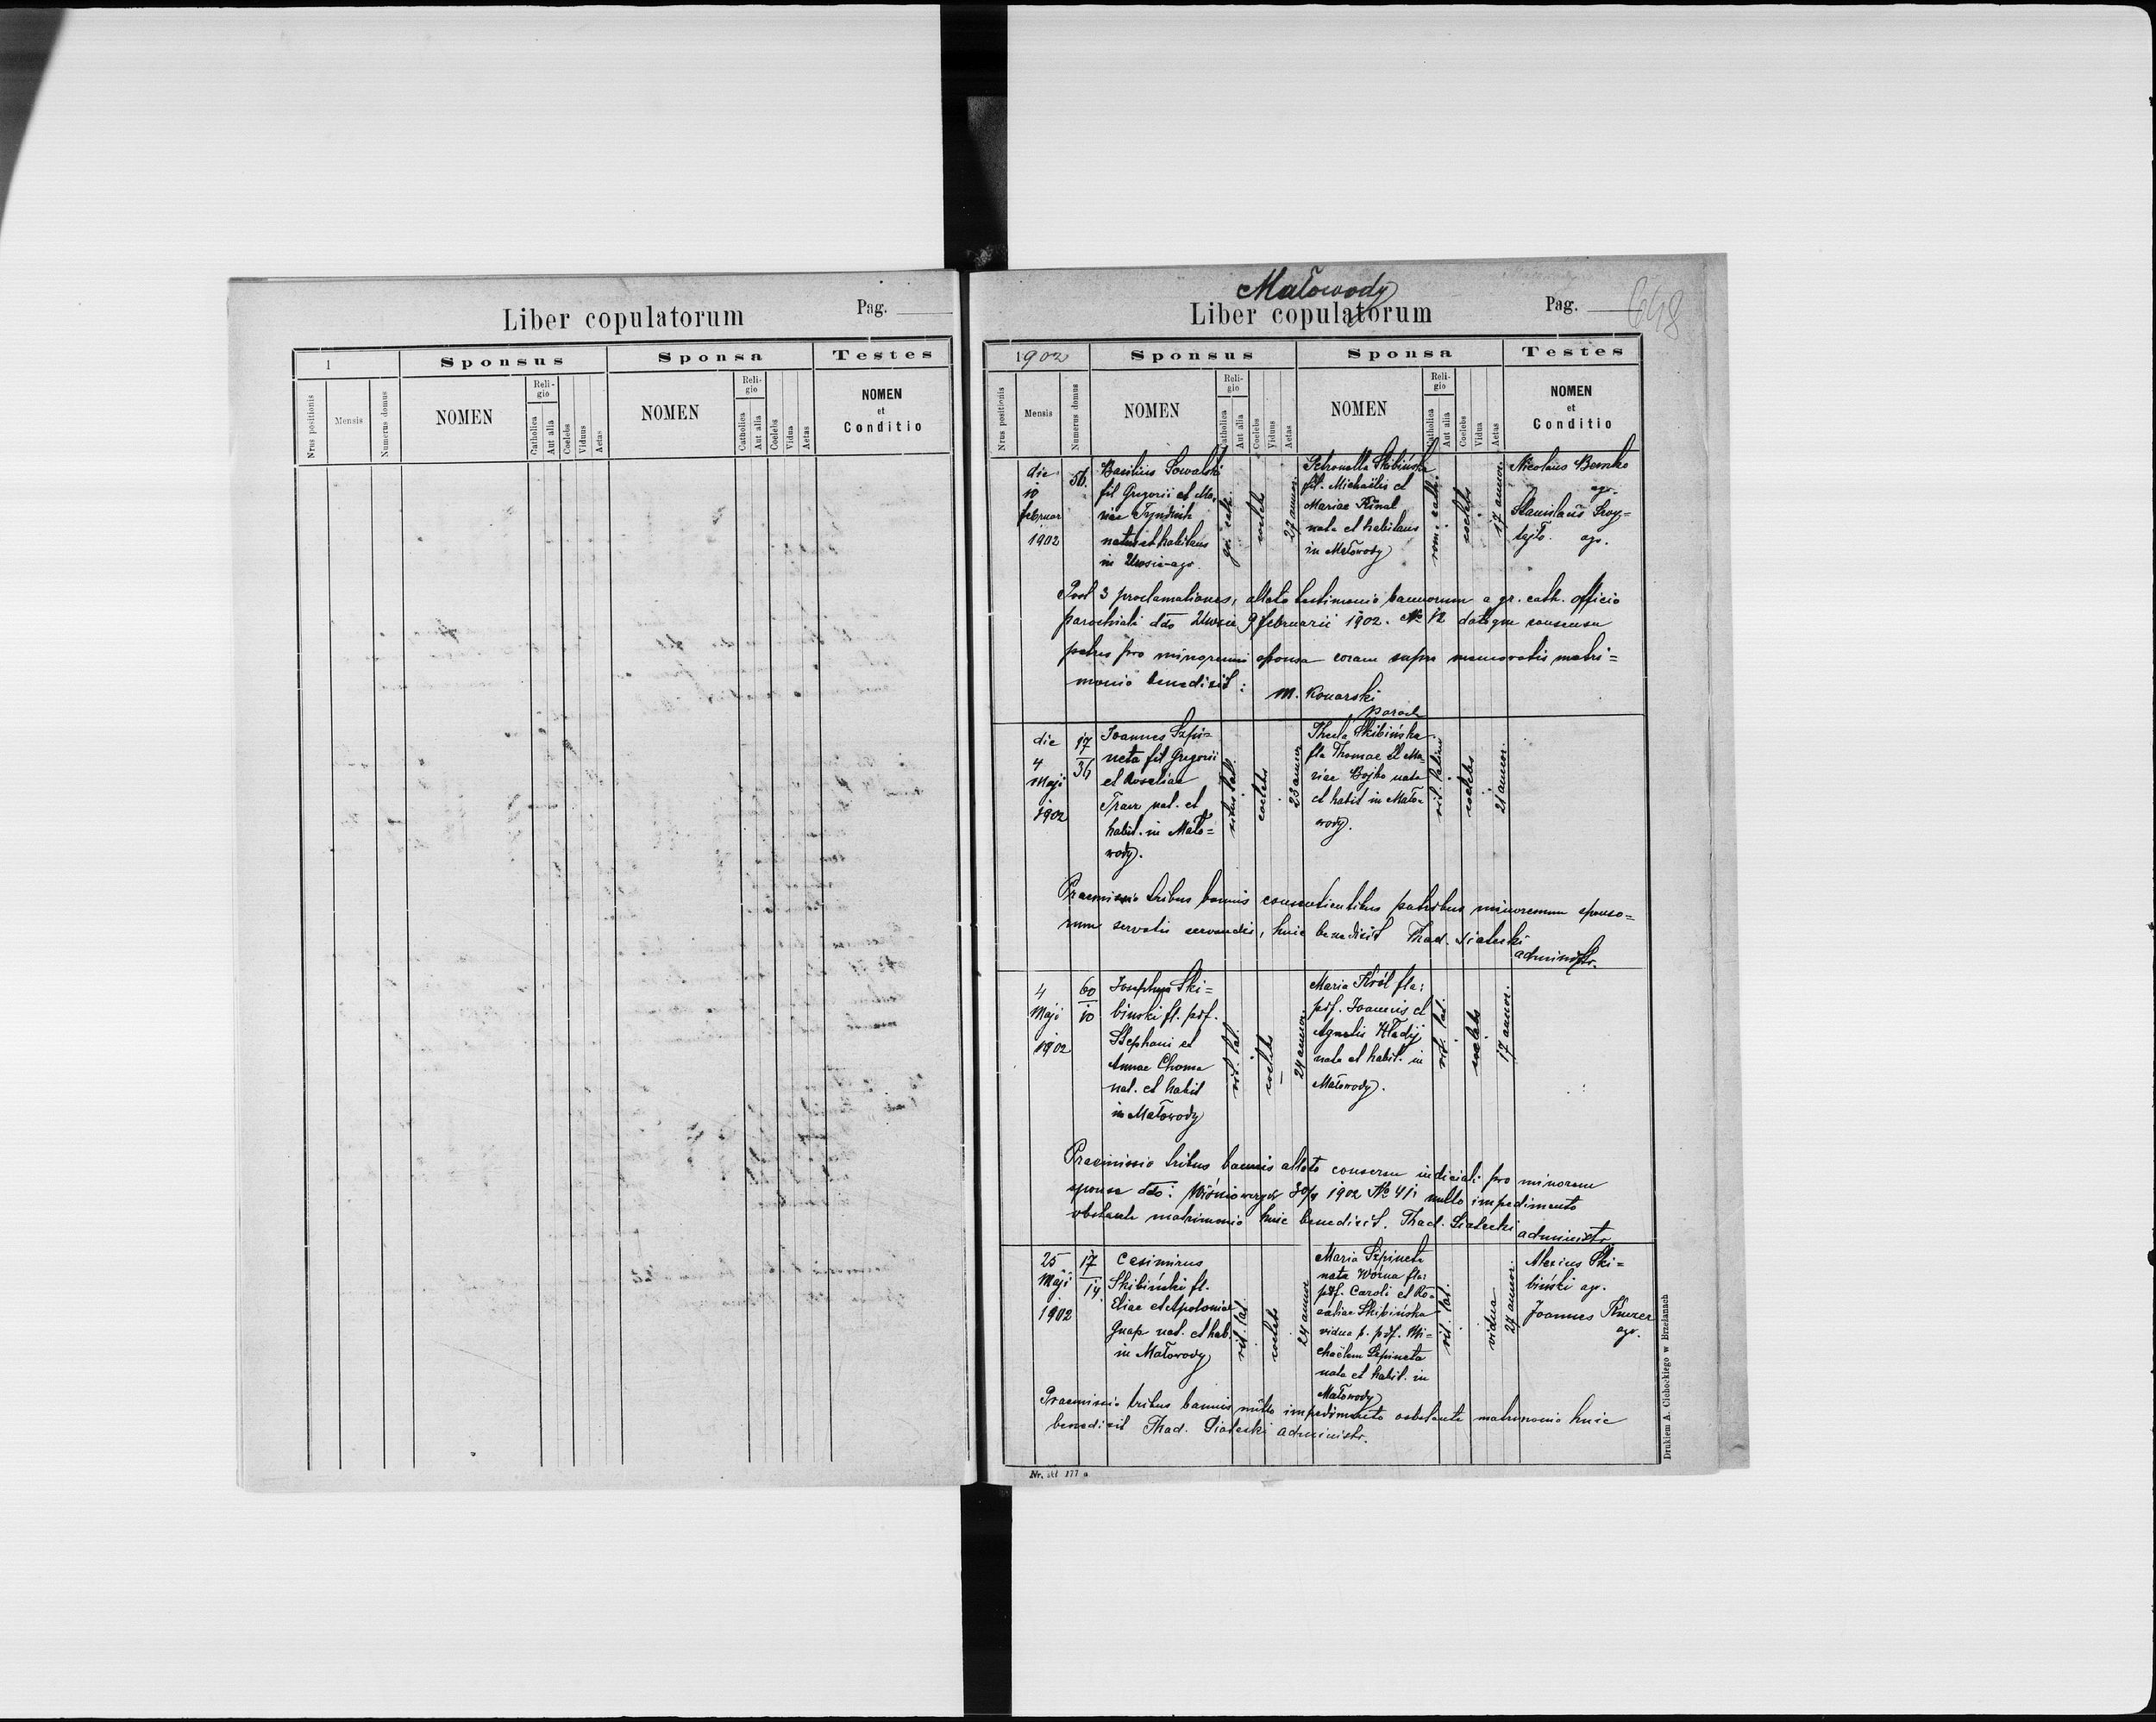 Liber copulatorum
Pag.
1
Sponsus
Sponsa
Testes
Nrus positionis
Mensis
Numerus domus
NOMEN
Religio
Catholica
Aut alia
Coelebs
Viduus
Aetas
NOMEN
Religio
Catholica
Aut alia
Coelebs
Vidua
Aetas
NOMEN
et
Conditio
Małowody
Liber copulatorum
Pag.
648
1902
Sponsus
Sponsa
Testes
Nrus positionis
Mensis
Numerus domus
NOMEN
Religio
Catholica
Aut alia
Coelebs
Viduus
Aetas
NOMEN
Religio
Catholica
Aut alia
Coelebs
Vidua
Aetas
NOMEN
et
Conditio
die
10
februar
1902
56.
Basilius Sowalski
fil Gregorii et Ma=
riae
natus et habitans
in Uwsie agr.
gr. cath.
coelebs
27 annor.
Petronella Skibińska
fil. Michaëlis et
Mariae Kinal
nata et habitans
in Małowody
rom. cath.
coelebs
17 annor.
Nicolaus Bemko
agr.
Stanislaus
agr.
Post 3 proclamationes, allato testimonio bannorum a gr. cath. officio
parochiali ddo Uwsie 9 februarii 1902. No 12 datoque consensu
patris pro minorenni sponsa coram supra memoratis matri=
monio benedixit: M. Konarski
Paroch
die
4
Maji
1902
17
36
Joannes Szpi=
neta fil Gregorii
et Rosaliae
Tracz nat. et
habit. in Mało=
wody.
ritus lat.
coelebs
23 annor
Thecla Skibińska
fla Thomae et Ma=
riae Bojko nata
et habit in Mało=
wody.
rit. latini
coelebs
21 annor.
Praemissis tribus bannis consentientibus patribus minorennum sponso=
rum servatis servandis, huic benedixit Thad. Siatecki
administr.
4
Maji
1902
60
10
Josephus Ski=
binski fl. pdf.
Stephani et
Annae Choma
nat. et habit
in Małowody
rit. lat.
coelebs
24 annor
Maria Król fla:
pdf. Joannis et
Agnetis Hładij
nata et habit. in
Małowody.
rit. lat.
coelebs
17 annor.
Praemissis tribus bannis allato consensu iudiciali pro minorenn
sponsa ddo: Wiśniowczyk 30/4 1902 No 41, nullo impedimento
obstante matrimonio huic benedixit. Thad. Siatecki administr
25
Maji
1902
17
14
Casimirus
Skibiński fl.
Eliae et Apoloniae
Gnap nat. et hab.
in Małowody
rit. lat.
coelebs
24 annor
Maria Szpineta
nata Worna fla:
pdf. Caroli et Ro=
saliae Skibińska
vidua p. pdf. Mi=
chaëlem Szpineta
nata et habit. in
Małowody
rit. lat.
vidua
27 annor.
Alexius Ski=
biński agr.
Joannes
agr.
Praemissis tribus bannis nullo impedimento obstante matrimonio huic
benedixit Thad. Siatecki administr.
Drukiem A. Cichockiego w Brzeżanach
Nr. skł 177 a